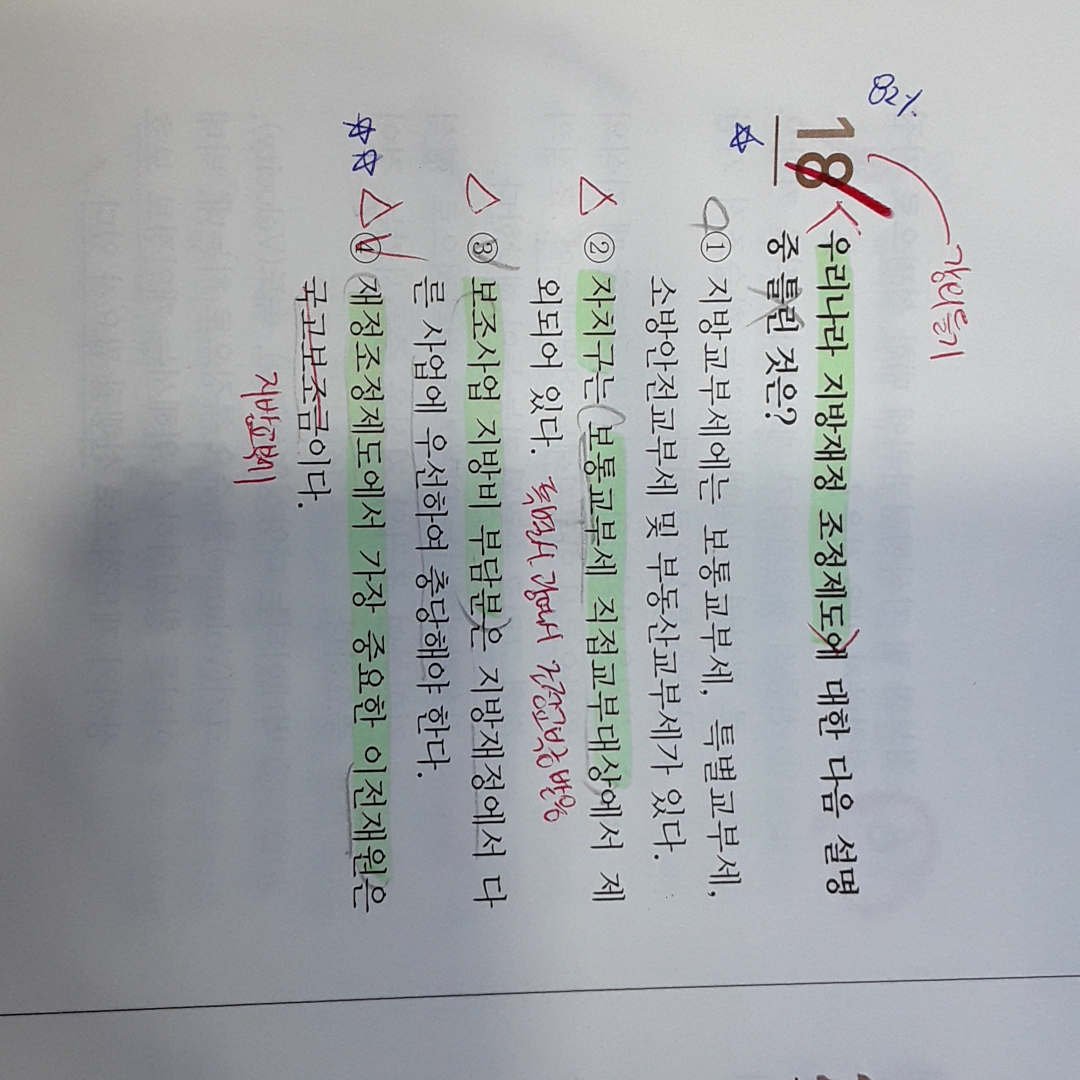 82%
18 우리나라 지방재정 조정제도에 대한 다음 설명
중 틀린 것은?
① 지방교부세에는 보통교부세, 특별교부세,
소방안전교부세 및 부동산교부세가 있다.
② 자치구는 보통교부세 직접교부대상에서 제
외되어 있다.
③ 보조사업 지방비 부담분은 지방재정에서 다
른 사업에 우선하여 충당해야 한다.
④ 재정조정제도에서 가장 중요한 이전재원은
국고보조금이다.